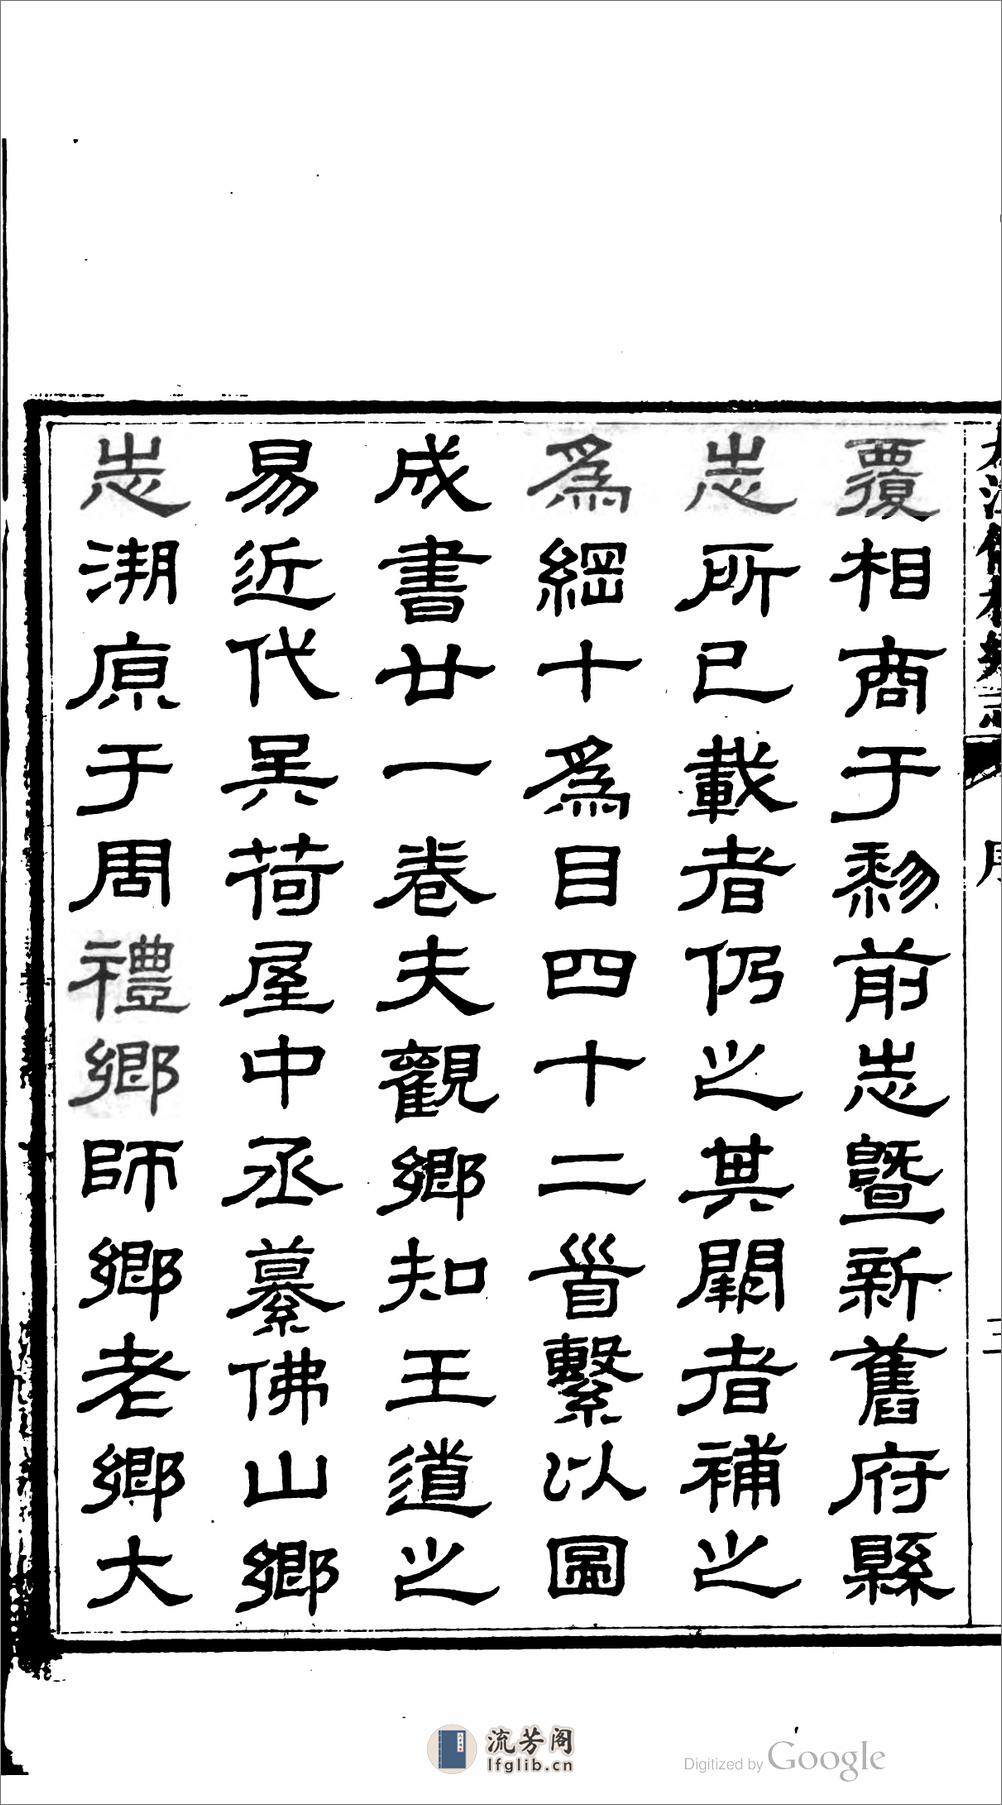 覆相商于剺前志曁新舊府縣
志所已載者仍之其闕者補之
爲綱十爲目四十二首繫以圖
成書廿一卷夫觀鄉知王道之
易近代吴荷屋中丞纂佛山鄉
志溯原于周禮鄉師鄉老鄉大
序
二
流芳阁
lfglib.cn
Digitized by Google